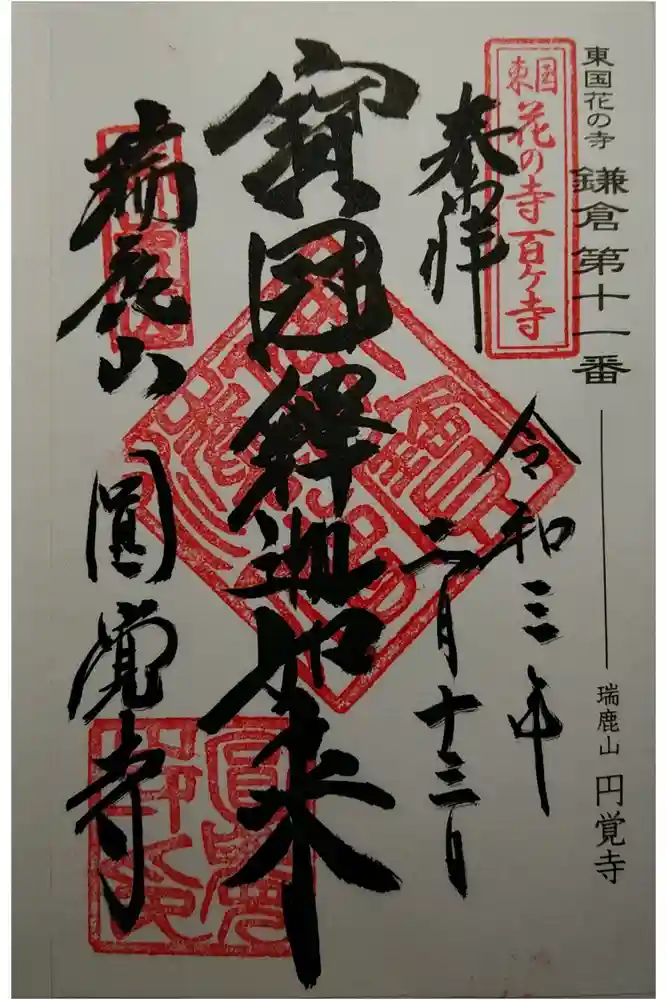 東国花の寺 鎌倉第十一番 瑞鹿山 円覚寺
東国
花の寺百ヶ寺
奉拝
令和三年
二月十三日
寳冠釋迦如来
瑞鹿山 圓覺寺